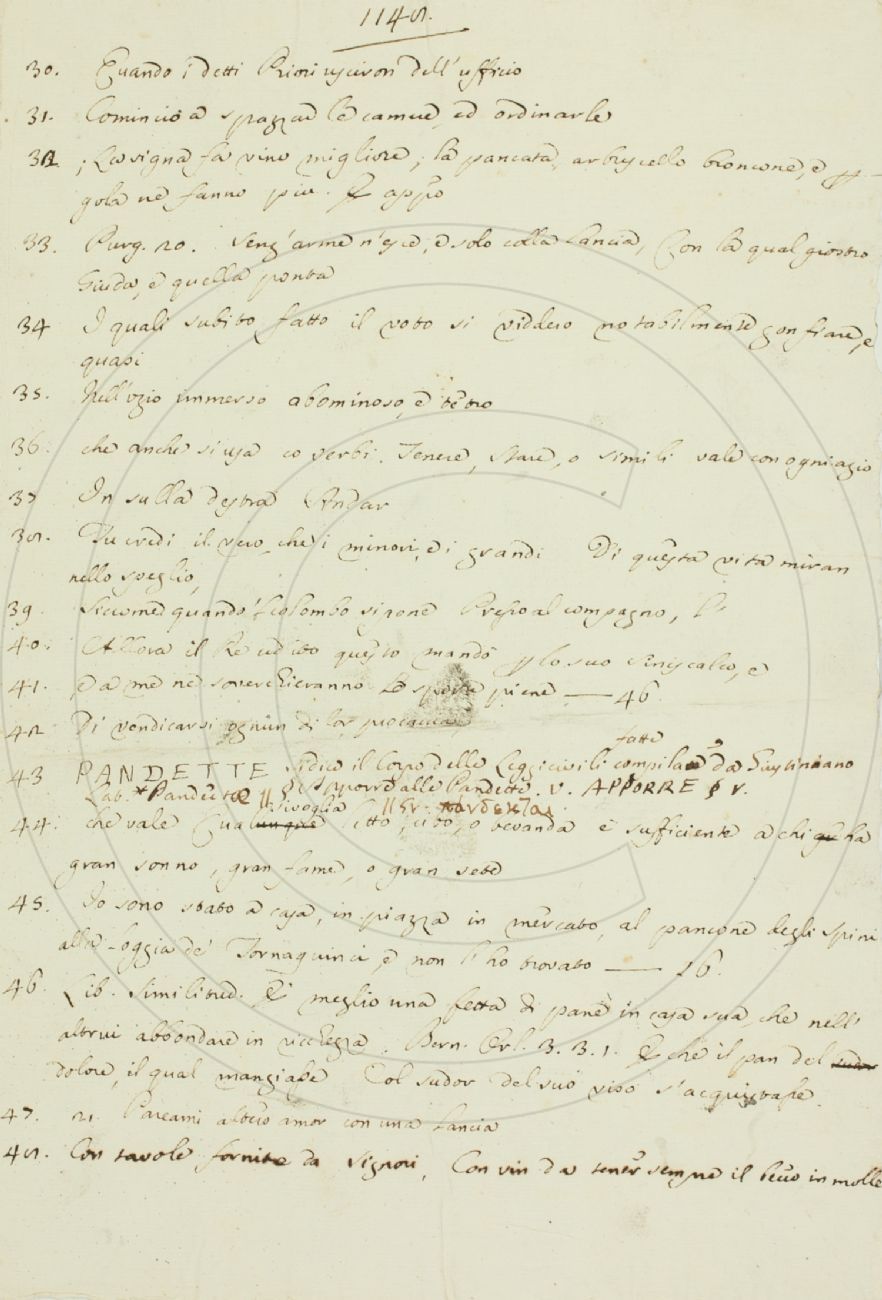 1148.
30. Quando i detti Priori usciron dell'ufficio
31. Cominciò a spazzar le camere, ed ordinarle
32. ; Losigna fa vino migliore; la pancata, arbuscello broncone, e
gola ne fanno più. E appo
33. Purg. 20. Senz'arme n'esce, e solo colla lancia, Con la qual giostrò
Giuda, e quella ponta
34 I quali subito fatto il voto si viddero notabilmente gonfiare, e
quasi
35. Nell'ozio immerso abominoso, e tetro
36. che anche si usa co verbi. Tenere, stare, o simili vale con ogni agio
37 In sulla destra Andar
38. Tu credi il vero, che i minori, e i grandi Di questa vita miran
nello speglio,
39. Siccome quando 'l colombo si pone Presso al compagno, l'
40. Allora il Re udito questo mandò per lo suo siniscalco, e
41. e a me ne soverchieranno le sporte piene — 46.
42 Di vendicarsi ognun di lor procaccia
fatte
43 PANDETTE Si dice il Corpo delle Leggi civili compilate da Giustiniano
Lat. *Pandectae || § Apporre alle Pandette. V. APPORRE § V.
sivoglia || Gr. πανδεκται
44. che vale Qualunque letto, cibo, o bevanda è sufficiente a chi ha
gran sonno, gran fame, o gran sete
45. Io sono stato a casa, in piazza in mercato, al pancone degli Spini
alla Loggia de' Tornaquinci, e non l'ho trovato — 16.
46. Lib. Similitud. È meglio una fetta di pane in casa sua, che nell'
altrui abbondare in ricchezza. Bern. Orl. 3. 3. 1. E che il pan del sudor
dolore, il qual mangiasse Col sudor del suo viso s'acquistasse.
47. 21. Pareami altero amor con una lancia
48. Con tavole fornite da signori, Con vin da tener sempre il becco in molle